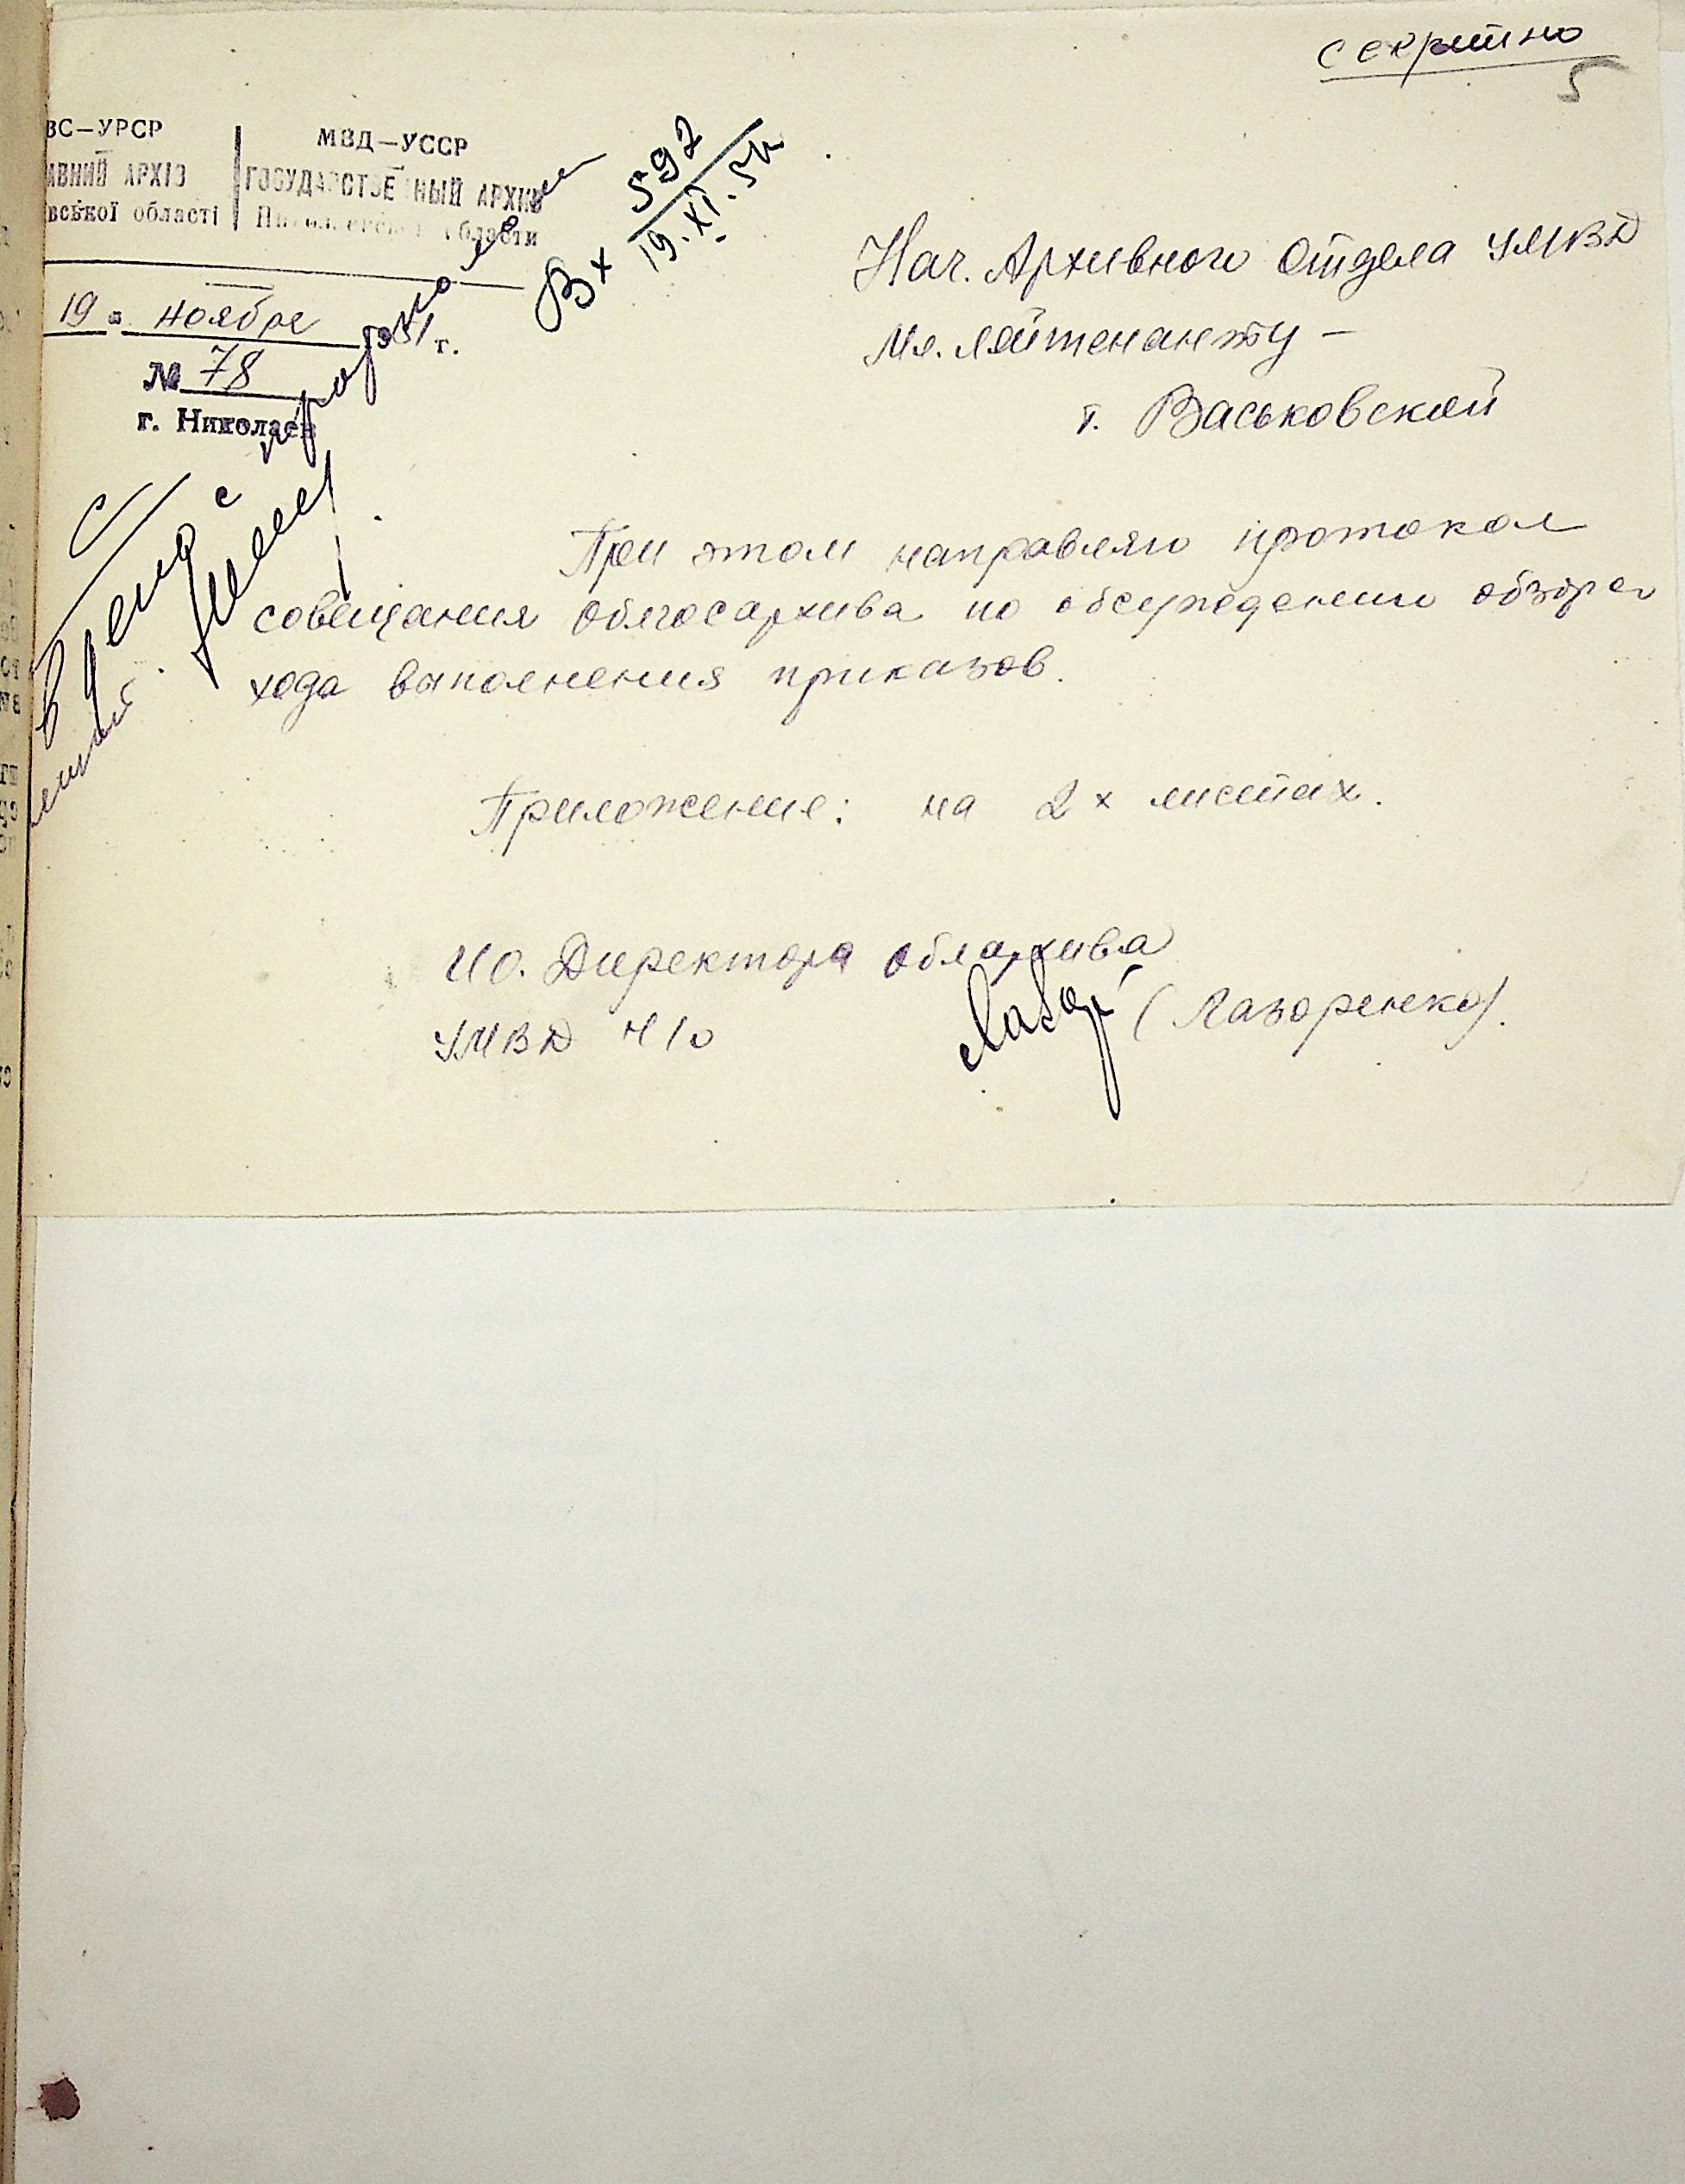 секретно
5
ВС—УРСР
АВНИЙ АРХІВ
вської області
МВД—УССР
ГОСУДАРСТВЕННЫЙ АРХИВ
области
19 ноября г.
№ 78
г. Николаев
Вх 592
19.XI.51
Нач. Архивного Отдела УМВД
Мл. лейтенанту —
т. Васьковской
При этом направляю протокол
совещания облгосархива по обсуждению обзора
хода выполнения приказов.
Приложение: на 2х листах.
ИО. Директора облархива
УМВД Н/о (Лазоренко).
с протоколами